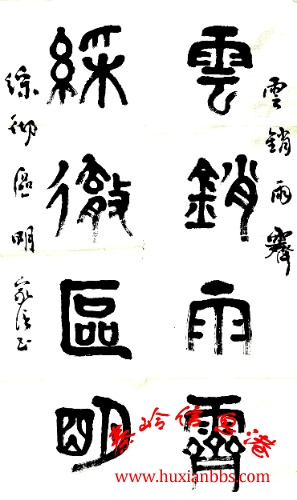 雲銷雨霽
雲銷雨霽
綵徹區明
綵徹區明
信息港
www.huxianbbs.com